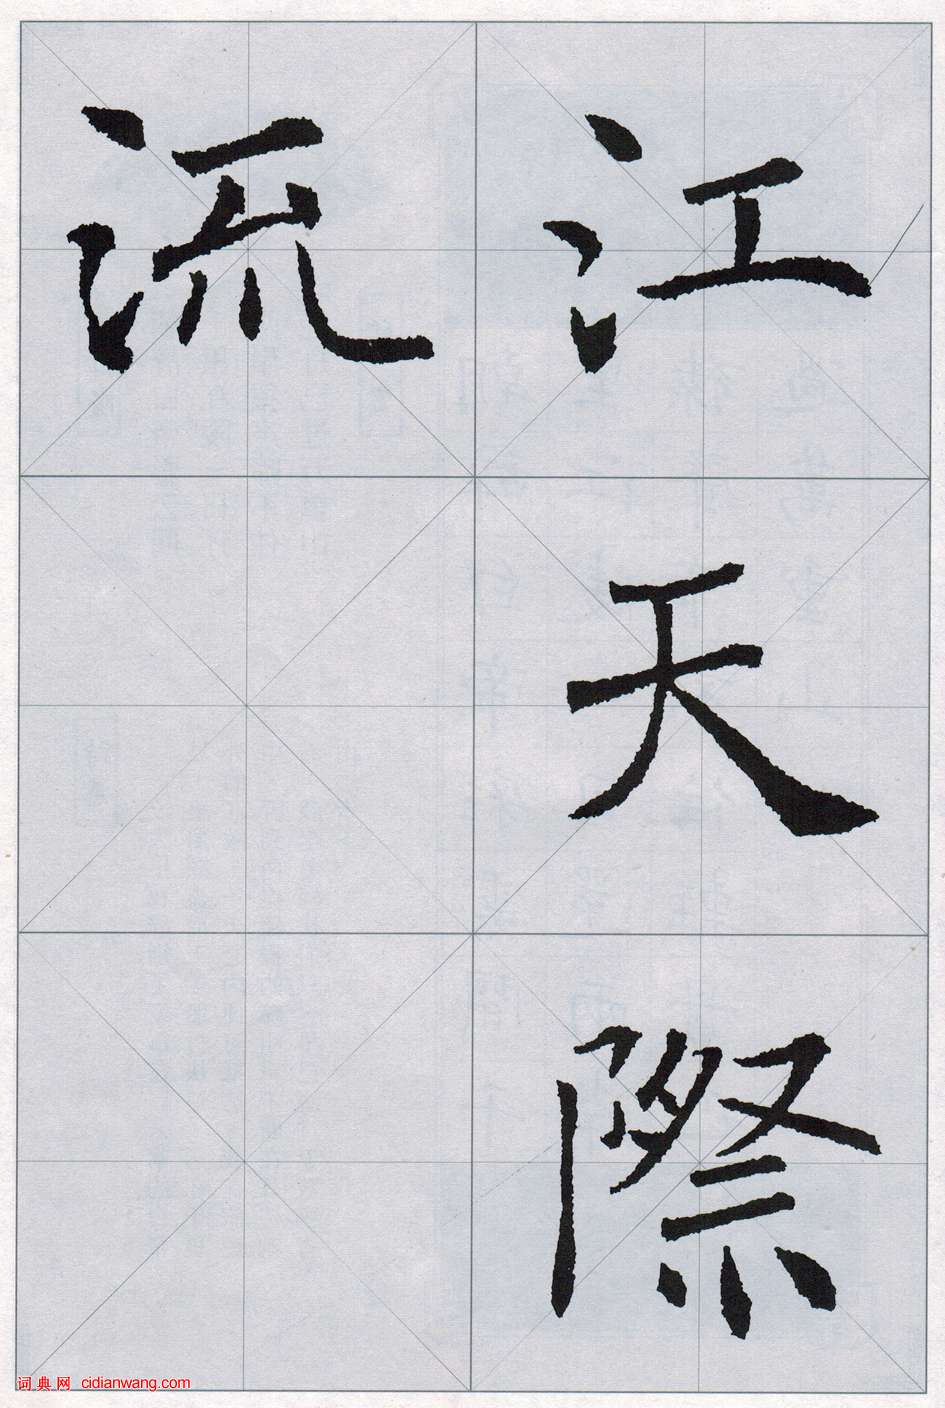 江天際
流
词典网 cidianwang.com